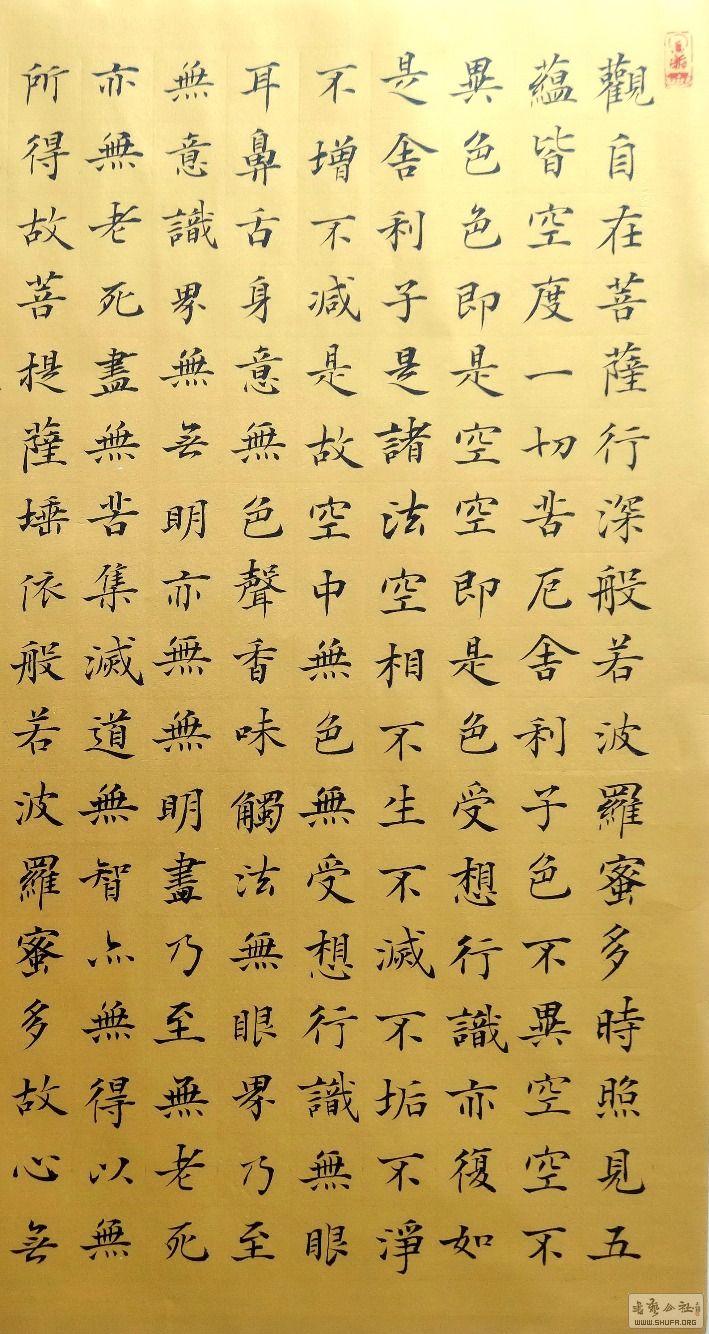 觀自在菩薩行深般若波羅蜜多時照見五
蘊皆空度一切苦厄舍利子色不異空空不
異色色即是空空即是色受想行識亦復如
是舍利子是諸法空相不生不滅不垢不淨
不增不減是故空中無色無受想行識無眼
耳鼻舌身意無色聲香味觸法無眼界乃至
無意識界無无明亦無無明盡乃至無老死
亦無老死盡無苦集滅道無智亦無得以無
所得故菩提薩埵依般若波羅蜜多故心无
书艺公社
WWW.SHUFA.ORG